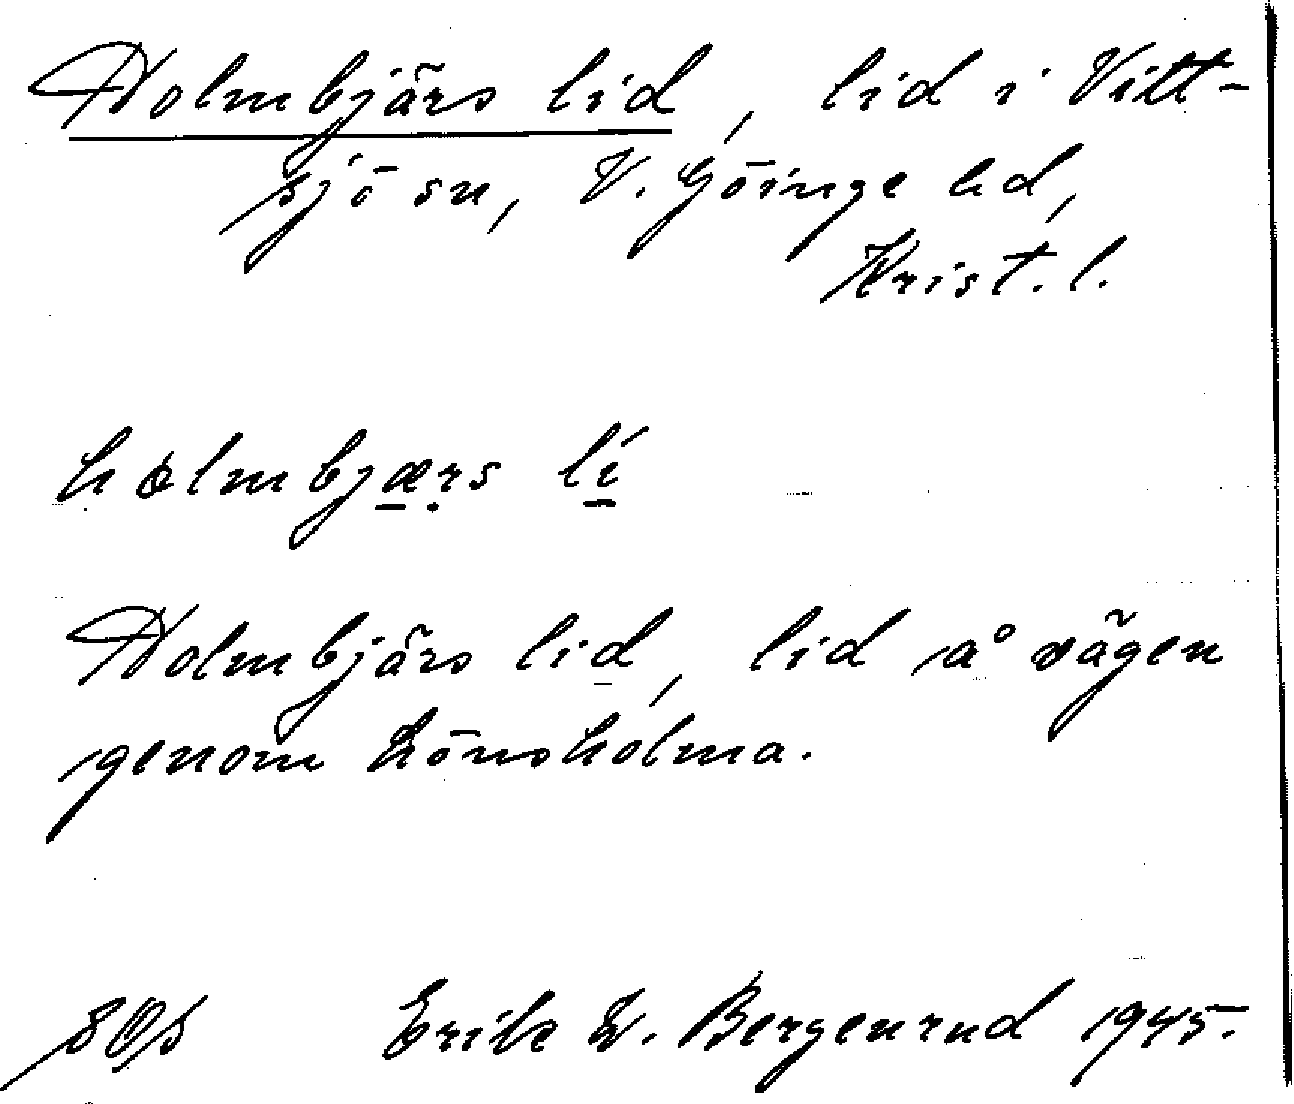 Holmbjärs lid, lid i Vitt-
sjö sn, V. Göinge hd,
Krist. l.
holmbjærs lí
Holmbjärs lid, lid å vägen
genom Lönsholma.
SOS Erik W. Bergenrud 1945.